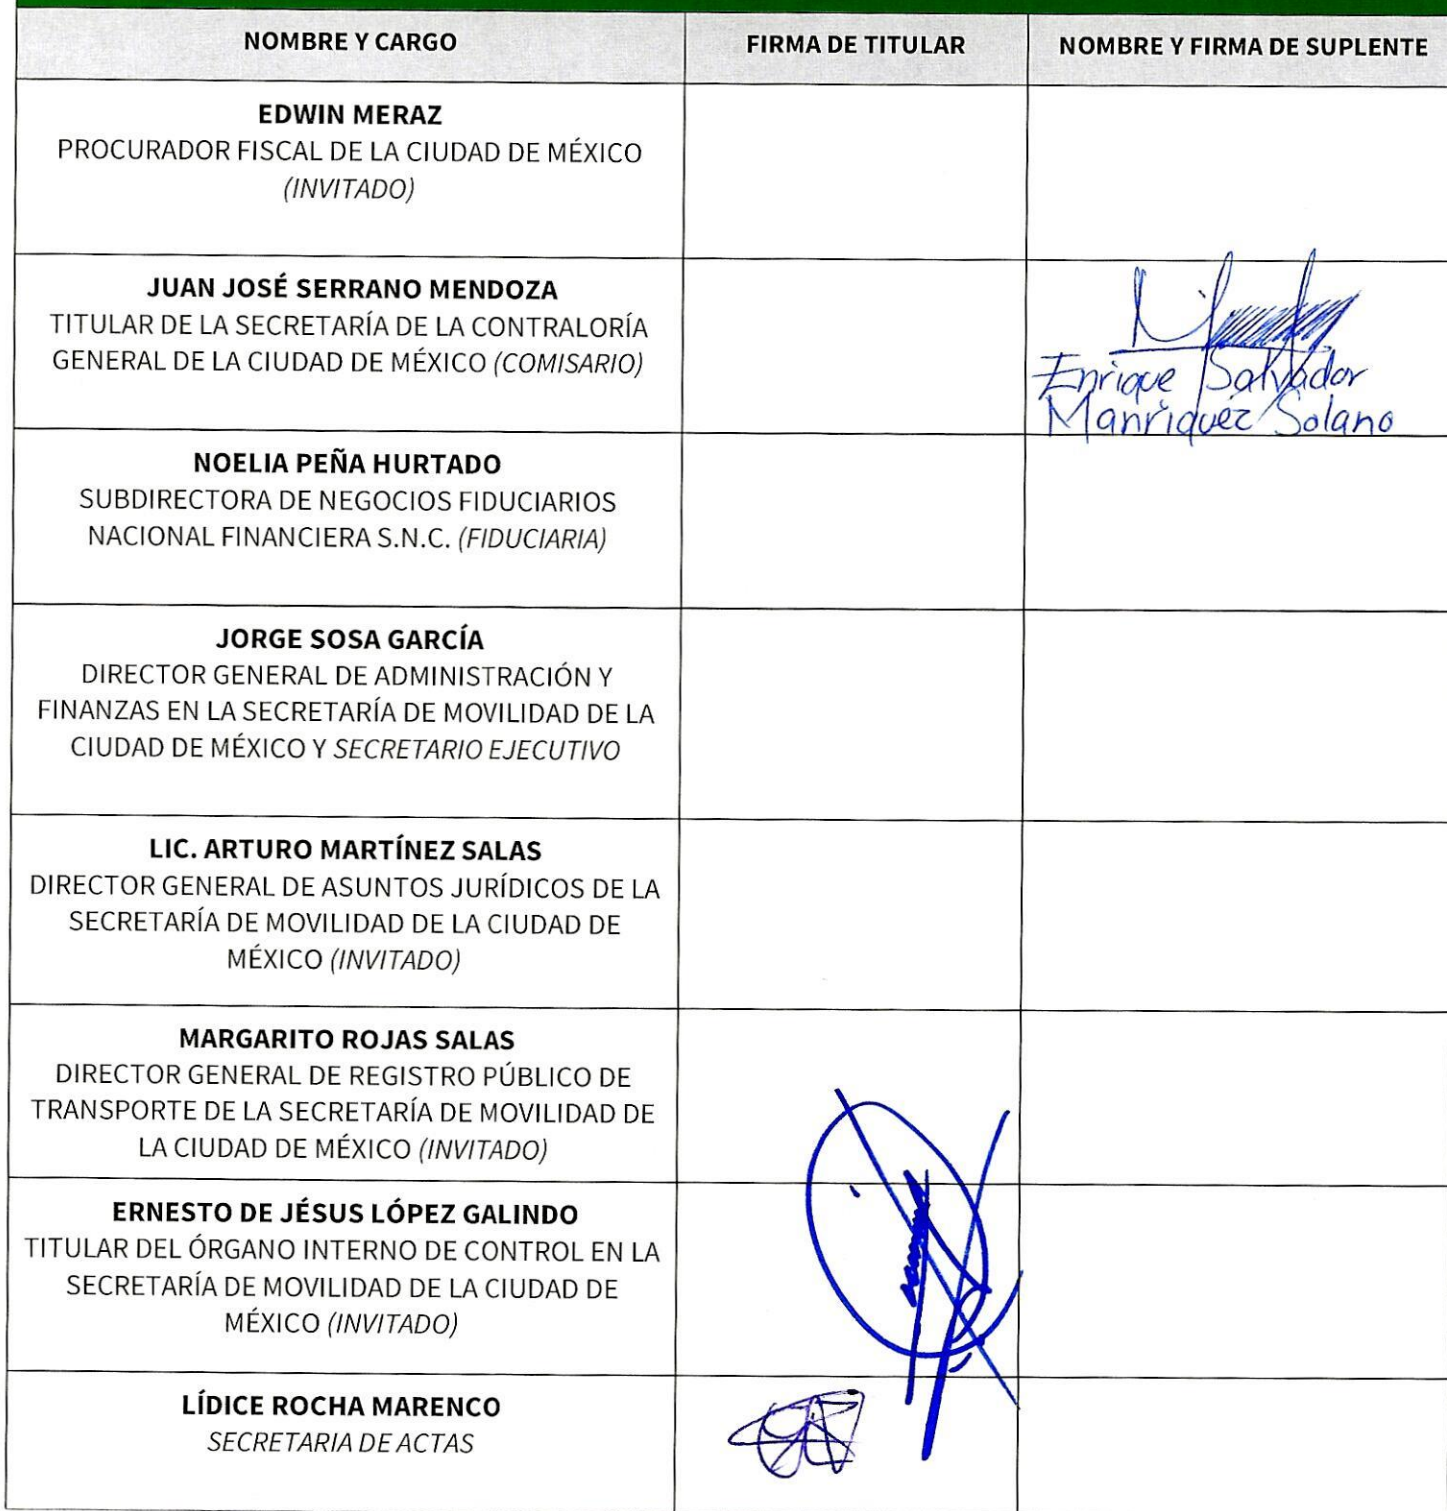 NOMBRE Y CARGO FIRMA DE TITULAR NOMBRE Y FIRMA DE SUPLENTE
EDWIN MERAZ
PROCURADOR FISCAL DE LA CIUDAD DE MÉXICO
(INVITADO)
JUAN JOSÉ SERRANO MENDOZA
TITULAR DE LA SECRETARÍA DE LA CONTRALORÍA
GENERAL DE LA CIUDAD DE MÉXICO (COMISARIO)
Enrique Salvador
Manriquez Solano
NOELIA PEÑA HURTADO
SUBDIRECTORA DE NEGOCIOS FIDUCIARIOS
NACIONAL FINANCIERA S.N.C. (FIDUCIARIA)
JORGE SOSA GARCÍA
DIRECTOR GENERAL DE ADMINISTRACIÓN Y
FINANZAS EN LA SECRETARÍA DE MOVILIDAD DE LA
CIUDAD DE MÉXICO Y SECRETARIO EJECUTIVO
LIC. ARTURO MARTÍNEZ SALAS
DIRECTOR GENERAL DE ASUNTOS JURÍDICOS DE LA
SECRETARÍA DE MOVILIDAD DE LA CIUDAD DE
MÉXICO (INVITADO)
MARGARITO ROJAS SALAS
DIRECTOR GENERAL DE REGISTRO PÚBLICO DE
TRANSPORTE DE LA SECRETARÍA DE MOVILIDAD DE
LA CIUDAD DE MÉXICO (INVITADO)
ERNESTO DE JÉSUS LÓPEZ GALINDO
TITULAR DEL ÓRGANO INTERNO DE CONTROL EN LA
SECRETARÍA DE MOVILIDAD DE LA CIUDAD DE
MÉXICO (INVITADO)
LÍDICE ROCHA MARENCO
SECRETARIA DE ACTAS